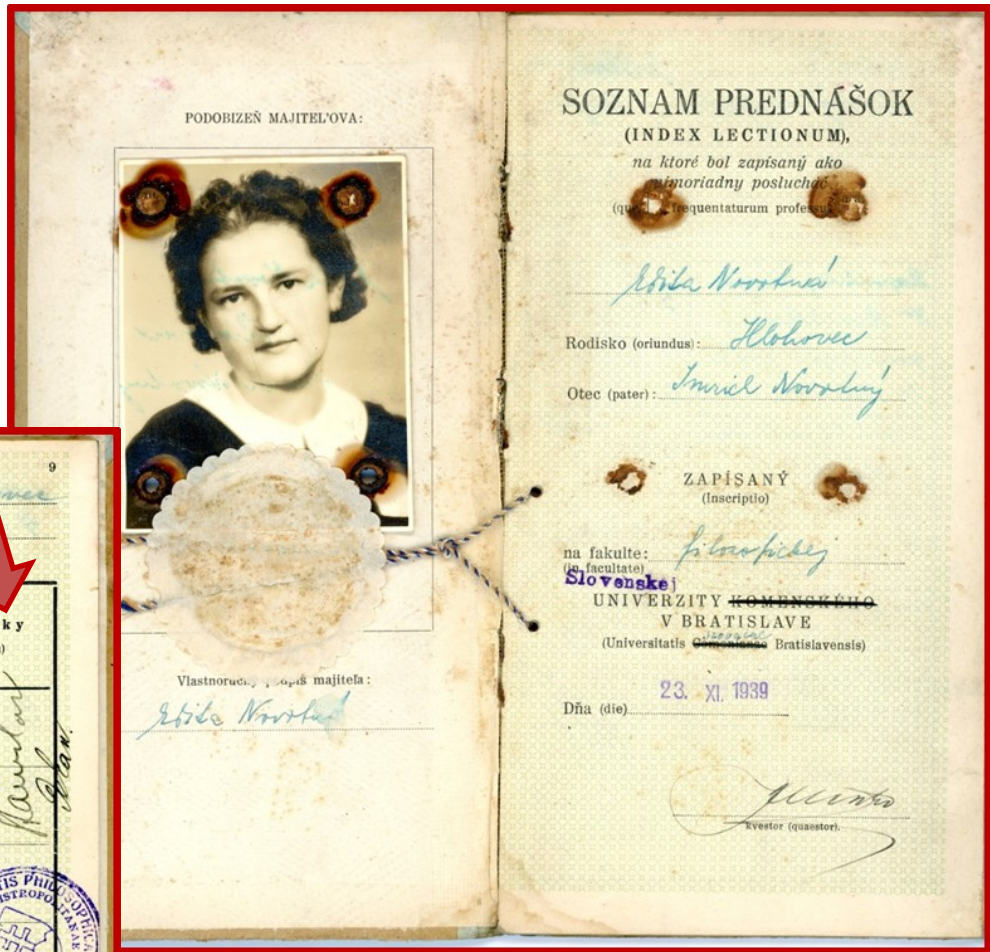 PODOBIZEŇ MAJITEĽOVA:
Vlastnoručný podpis majiteľa:
Edita Novotná
SOZNAM PREDNÁŠOK
(INDEX LECTIONUM),
na ktoré bol zapísaný ako
mimoriadny poslucháč
frequentaturum
Edita Novotná
Rodisko (oriundus): Hlohovec
Otec (pater): Imrich Novotný
ZAPÍSANÝ
(Inscriptio)
na fakulte: filozofickej
(in facultate)
Slovenskej
UNIVERZITY KOMENSKÉHO
V BRATISLAVE
(Universitatis Comenianae Bratislavensis)
Dňa (die) 23. XI. 1939
kvestor (quaestor).
9